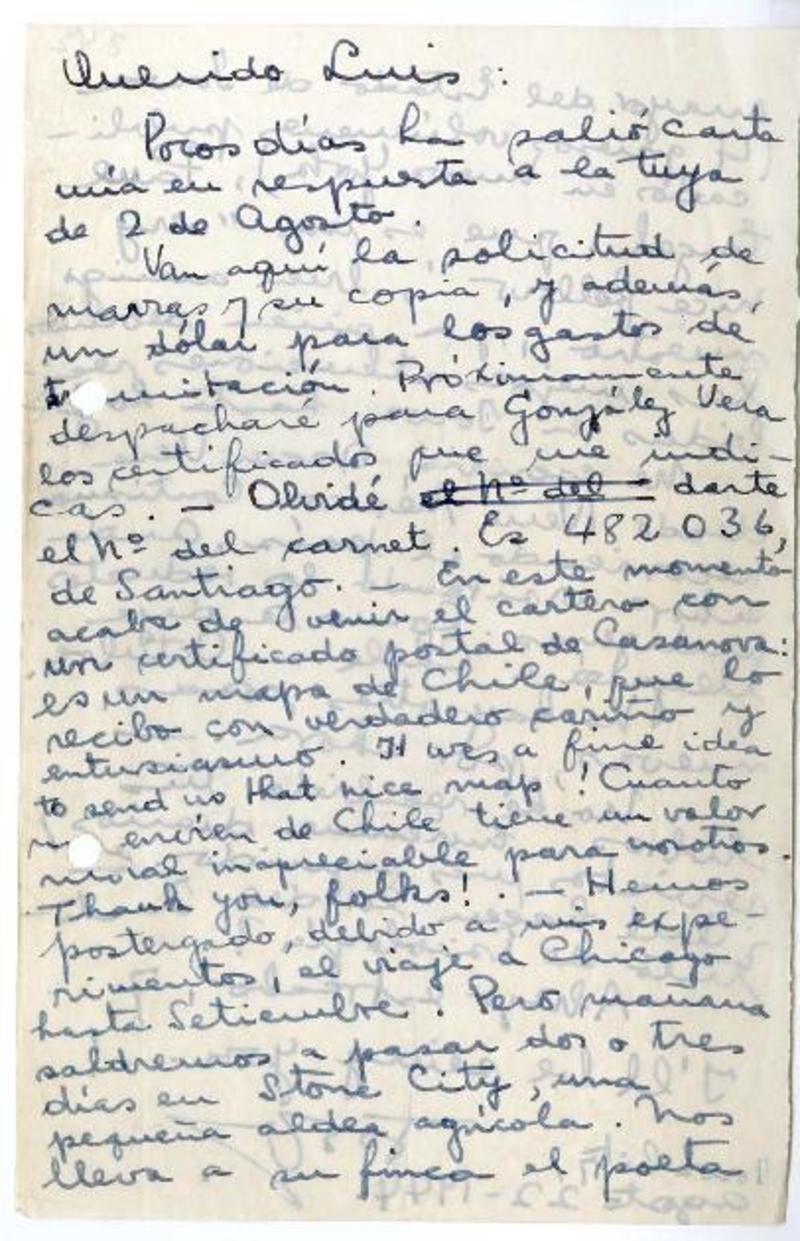 Querido Luis:
Pocos días ha salió carta
mía en respuesta a la tuya
de 2 de Agosto.
Van aquí la solicitud de
marras y su copia, y además,
un dólar para los gastos de
tr mitación. Próximamente
despacharé para González Vera
los certificados que me indi-
cas. — Olvidé el Nº del darte
el Nº del carnet. Es 482036,
de Santiago. — En este momento
acaba de venir el cartero con
un certificado postal de Casanova:
es un mapa de Chile, que lo
recibo con verdadero cariño y
entusiasmo. It was a fine idea
to send us that nice map! Cuanto
n envíen de Chile tiene un valor
moral inapreciable para nosotros.
Thank you, folks! . — Hemos
postergado, debido a mis expe-
rimentos, el viaje a Chicago
hasta Setiembre. Pero mañana
saldremos a pasar dos o tres
días en Stone City, una
pequeña aldea agrícola. Nos
lleva a su finca el poeta